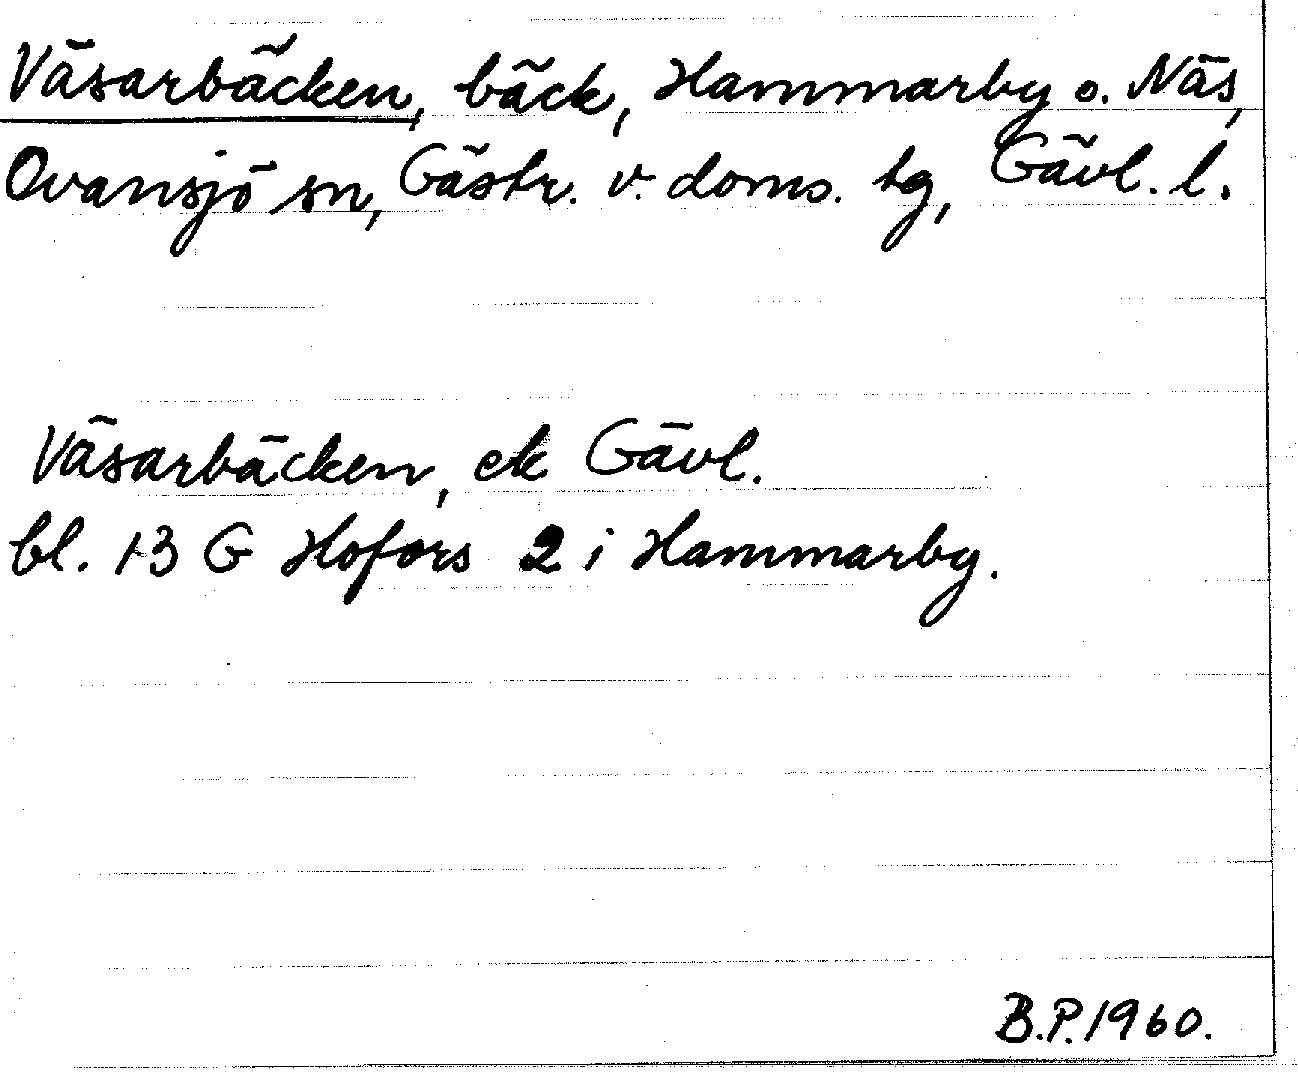 Väsarbäcken, bäck, Hammarby o. Näs,
Ovansjö sn, Gästr. v. doms. tg, Gävl. l.
Väsarbäcken, ek Gävl.
bl. 13 G Hofors 2 i Hammarby.
B.P. 1960.